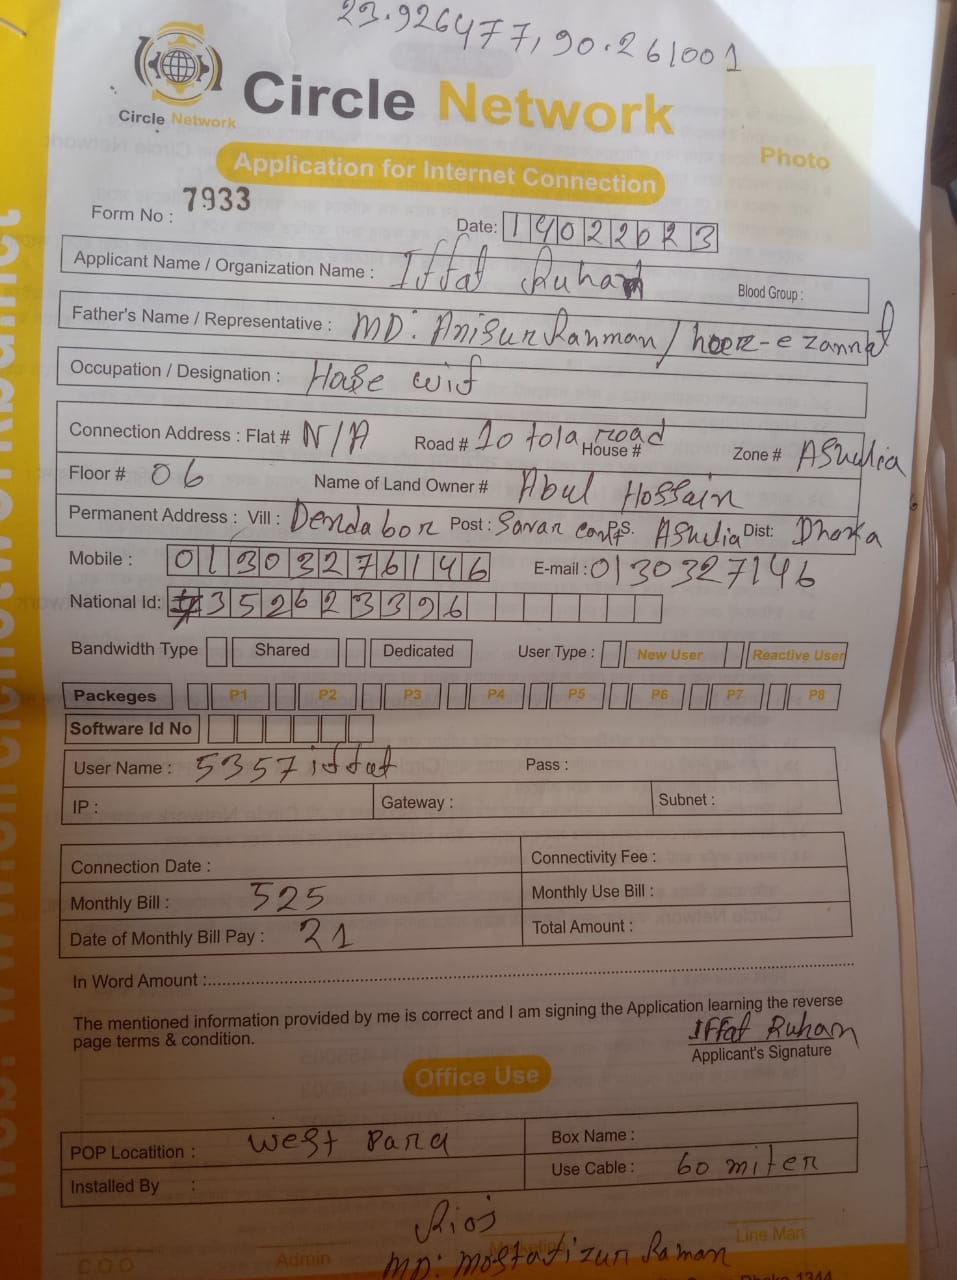 23.926477, 90.261001
Circle Network
Circle Network
Application for Internet Connection
Photo
Form No : 7933
Date: 14022023
Applicant Name / Organization Name : Iffat Ruhan
Blood Group :
Father's Name / Representative : MD: Anisur Rahman / hoor-e zannat
Occupation / Designation : Hase wif
Connection Address : Flat # N/A Road # 10 tola road House # Zone # Ashulia
Floor # 06 Name of Land Owner # Abul Hossain
Permanent Address : Vill : Dendabor Post : Savar cant P.S. Ashulia Dist: Dhaka
Mobile : 01303276146 E-mail : 0130327146
National Id: 7352623396
Bandwidth Type Shared Dedicated User Type : New User Reactive User
Packeges P1 P2 P3 P4 P5 P6 P7 P8
Software Id No
User Name : 5357iffat Pass :
IP : Gateway : Subnet :
Connection Date : Connectivity Fee :
Monthly Bill : 525 Monthly Use Bill :
Date of Monthly Bill Pay : 21 Total Amount :
In Word Amount :
The mentioned information provided by me is correct and I am signing the Application learning the reverse
page terms & condition.
Iffat Ruhan
Applicant's Signature
Office Use
POP Locatition : West Para Box Name :
Installed By : Use Cable : 60 miter
Rioj
COO Admin Line Man
MD: Mostafizur Raman
Dhaka 1344